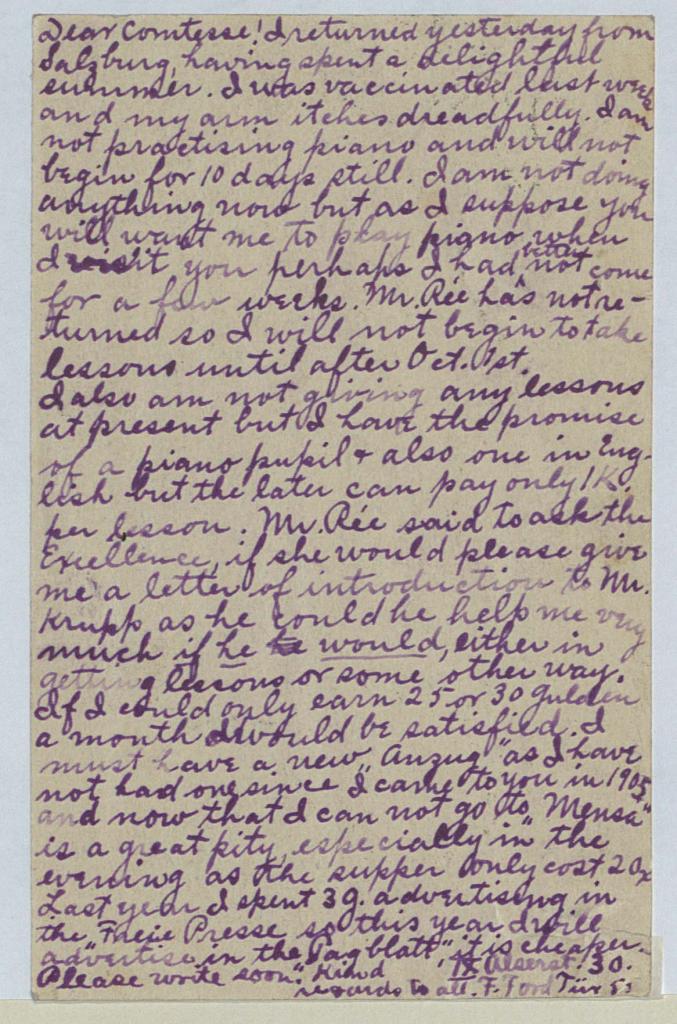 Dear Comtesse! I returned yesterday from
Salzburg, having spent a delightful
summer. I was vaccinated last week
and my arm itches dreadfully. I am
not practising piano and will not
begin for 10 days still. I am not doing
anything now but as I suppose you
will want me to play piano when
I visit you perhaps I had better not come
for a few weeks. Mr. Rée has not re-
turned so I will not begin to take
lessons until after Oct. 1st.
I also am not giving any lessons
at present but I have the promise
of a piano pupil + also one in Eng-
lish but the later can pay only 1 K.
per lesson. Mr. Rée said to ask the
Excellence, if she would please give
me a letter of introduction to Mr.
Krupp as he could he help me very
much if he he would, either in
getting lessons or some other way.
If I could only earn 25 or 30 Gulden
a month I would be satisfied. I
must have a new "Anzug" as I have
not had one since I came to you in 1905
and now that I can not go to "Mensa"
is a great pity, especially in the
evening as the supper only cost 20x
Last year I spent 3 g. advertising in
the Freie Presse so this year I will
advertise in the "Tagblatt", it is cheaper.
Please write soon. Kind IX Alserst. 30.
regards to all. F. Ford Tür 5